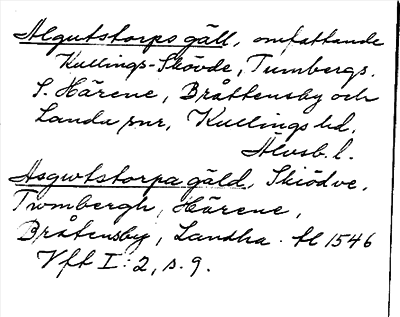 Algutstorps gäll, omfattande
Kullings-Skövde, Tumbergs,
S. Härene, Bråttensby och
Landa snr, Kullings hd,
Älvsb. l.
Asgwtstorpa gäld, Skiödve,
Twmbergh, Härene,
Bråtensby, Landha. tl 1546
Vft I: 2, s. 9.